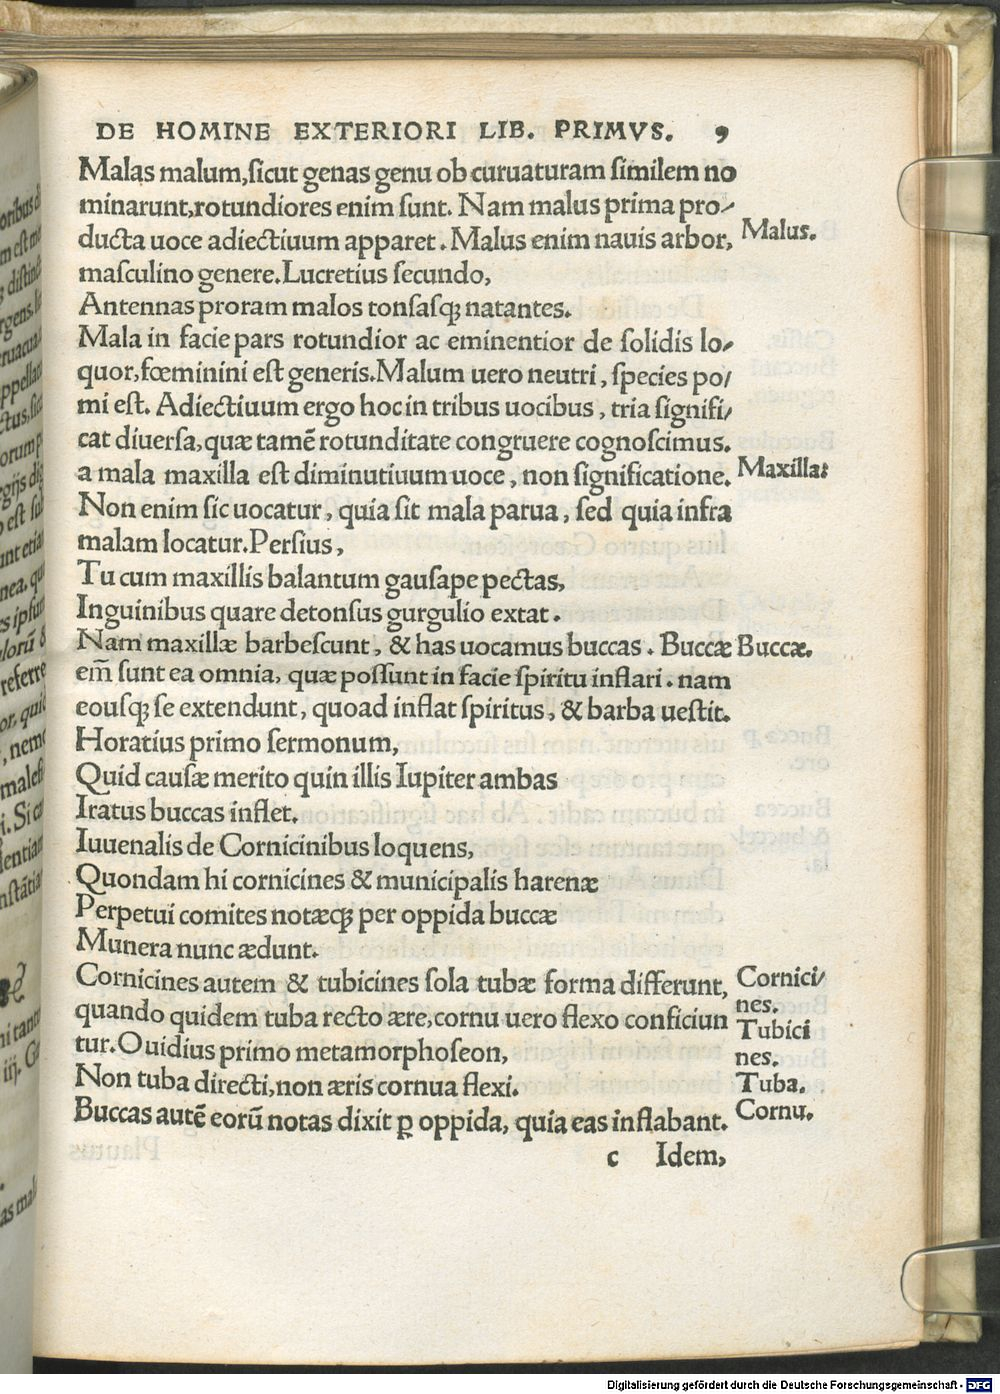 DE HOMINE EXTERIORI LIB. PRIMVS. 9
Malas malum,ſicut genas genu ob curuaturam ſimilem no
minarunt,rotundiores enim ſunt. Nam malus prima pro-
ducta uoce adiectiuum apparet. Malus enim nauis arbor,
Malus.
maſculino genere.Lucretius ſecundo,
Antennas proram malos tonſasqꝫ natantes.
Mala in facie pars rotundior ac eminentior de ſolidis lo-
quor,fœminini eſt generis.Malum uero neutri, ſpecies po/
mi eſt. Adiectiuum ergo hoc in tribus uocibus, tria ſignifi/
cat diuerſa,quæ tamē rotunditate congruere cognoſcimus.
a mala maxilla eſt diminutiuum uoce, non ſignificatione.
Maxilla:
Non enim ſic uocatur, quia ſit mala parua, ſed quia infra
malam locatur.Perſius,
Tu cum maxillis balantum gauſape pectas,
Inguinibus quare detonſus gurgulio extat.
Nam maxillæ barbeſcunt, & has uocamus buccas. Buccæ
Buccæ.
em̄ ſunt ea omnia, quæ poſſunt in facie ſpiritu inflari. nam
eouſqꝫ ſe extendunt, quoad inflat ſpiritus, & barba ueſtit.
Horatius primo ſermonum,
Quid cauſæ merito quin illis Iupiter ambas
Iratus buccas inflet.
Iuuenalis de Cornicinibus loquens,
Quondam hi cornicines & municipalis harenæ
Perpetui comites notæqꝫ per oppida buccæ
Munera nunc ædunt.
Cornicines autem & tubicines ſola tubæ forma differunt,
Cornici/
nes.
quando quidem tuba recto ære,cornu uero flexo conficiun
Tubici
tur.Ouidius primo metamorphoſeon,
nes.
Non tuba directi,non æris cornua flexi.
Tuba.
Buccas autē eorū notas dixit ꝑ oppida, quia eas inflabant.
Cornu.
c Idem,
Digitalisierung gefördert durch die Deutsche Forschungsgemeinschaft - DFG